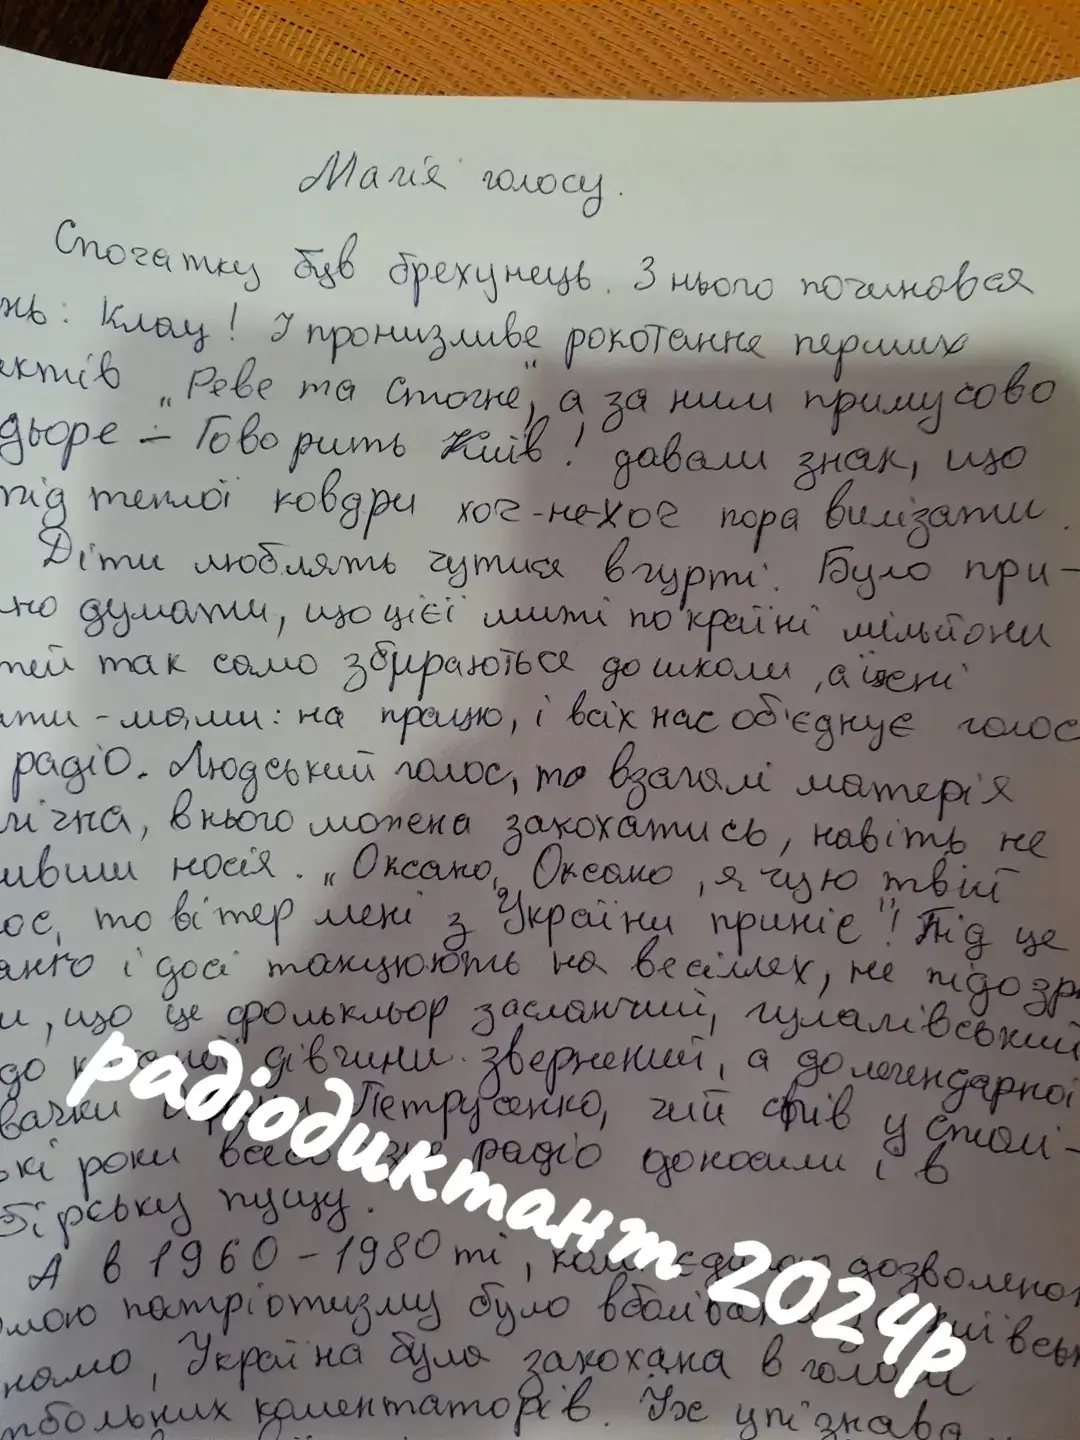 Магія голосу.
Спочатку був брехунець. З нього починався
нь: Клац! І пронизливе рокотання перших
ектів „Реве та Стогне", а за ним примусово
дьоре – Говорить Київ! давали знак, що
під теплої ковдри хоч-не-хоч пора вилізати.
Діти люблять чутися в гурті. Було при-
но думати, що цієї миті по країні мільйони
тей так само збираються до школи, а їхні
ати-мами: на працю, і всіх нас об'єднує голос
радіо. Людський голос, то взагалі матерія
гічна, в нього можна закохатись, навіть не
ивши носія. „Оксано, Оксано, я чую твій
ос, то вітер мені з України приніс"! Під це
анго і досі танцюють на весіллях, не підозрю
и, що це фольклор засланчий, гулагівський
до к дівчини звернений, а до легендарної
вачки Петрусенко, чий спів у сталі-
ькі роки радіо доносили і в
бірську пущу.
А в 1960-1980 ті, коли дозволеною
мою патріотизму було вболівання київськ
намо, Україна була закохана в голоси
тбольних коментаторів. Їх упізнава
радіодиктант 2024р